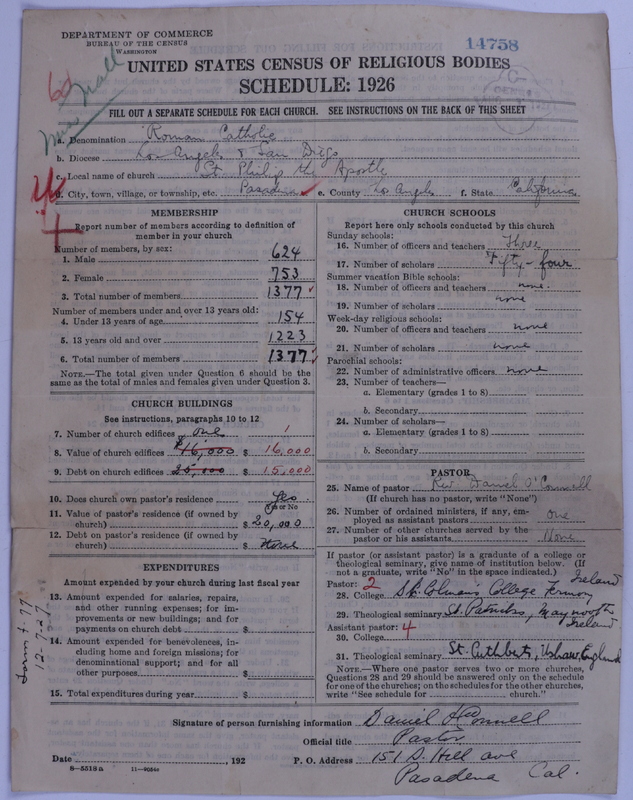 DEPARTMENT OF COMMERCE
BUREAU OF THE CENSUS
WASHINGTON
14758
UNITED STATES CENSUS OF RELIGIOUS BODIES
SCHEDULE: 1926
FILL OUT A SEPARATE SCHEDULE FOR EACH CHURCH. SEE INSTRUCTIONS ON THE BACK OF THIS SHEET
a. Denomination Roman Catholic
b. Diocese Los Angeles & San Diego
c. Local name of church St. Philip the Apostle
d. City, town, village, or township, etc. Pasadena e. County Los Angeles f. State California
MEMBERSHIP
Report number of members according to definition of member in your church
Number of members, by sex:
1. Male 624
2. Female 753
3. Total number of members 1377
Number of members under and over 13 years old:
4. Under 13 years of age 154
5. 13 years old and over 1223
6. Total number of members 1377
NOTE.—The total given under Question 6 should be
same as the total of males and females given under Question 3.
CHURCH BUILDINGS
See instructions, paragraphs 10 to 12
7. Number of church edifices one 1
8. Value of church edifices $16,000 $ 16,000
9. Debt on church edifices 25,000 $ 15,000
10. Does church own pastor's residence Yes
Yes or No
11. Value of pastor's residence (if owned by
church) $ 20,000
12. Debt on pastor's residence (if owned by
church) $ None
EXPENDITURES
Amount expended by your church during last fiscal year
13. Amount expended for salaries, repairs,
and other running expenses; for im-
provements or new buildings; and for
payments on church debt $
14. Amount expended for benevolences, in-
cluding home and foreign missions; for
denominational support; and for all
other purposes $
15. Total expenditures during year $
12-7-27
CHURCH SCHOOLS
Report here only schools conducted by this church
Sunday schools:
16. Number of officers and teachers Three
17. Number of scholars Fifty-four
Summer vacation Bible schools:
18. Number of officers and teachers none.
19. Number of scholars none
Week-day religious schools:
20. Number of officers and teachers none
21. Number of scholars none
Parochial schools:
22. Number of administrative officers none
23. Number of teachers—
a. Elementary (grades 1 to 8)
b. Secondary
24. Number of scholars—
a. Elementary (grades 1 to 8)
b. Secondary
PASTOR
25. Name of pastor Rev Daniel O'Connell
(If church has no pastor, write "None")
26. Number of ordained ministers, if any, em-
ployed as assistant pastors one
27. Number of other churches served by the
pastor or his assistants None
If pastor (or assistant pastor) is a graduate of a college or
theological seminary, give name of institution below. (If
not a graduate, write "No" in the space indicated.)
Pastor: 2 Ireland
28. College St. Colman's College Fermoy
29. Theological seminary St. Patricks, Maynooth
Ireland
Assistant pastor: 4
30. College
31. Theological seminary St. Cuthberts, Ushaw, England
NOTE.—Where one pastor serves two or more churches,
Questions 28 and 29 should be answered only on the schedule
for one of the churches; on the schedules for the other churches,
write "See schedule for church."
Signature of person furnishing information Daniel O'Connell
Official title Pastor
Date , 192 P. O. Address 151 S. Hill ave
Pasadena Cal.
8—5518a 11—9056a